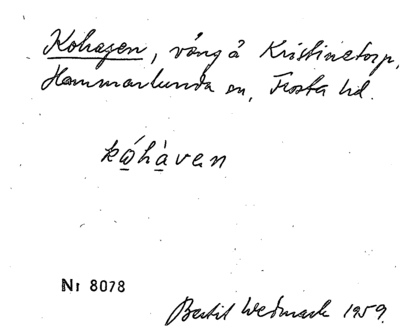 Kohagen, vång å Kristinetorp,
Hammarlunda sn, Frosta hd.
kǫ́hą̀ven
Nr 8078
Bertil Wedmark 1959.